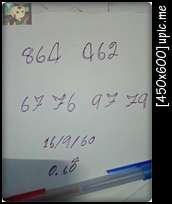 864 462
67 76 97 79
16/9/60
[450x600] upic.me